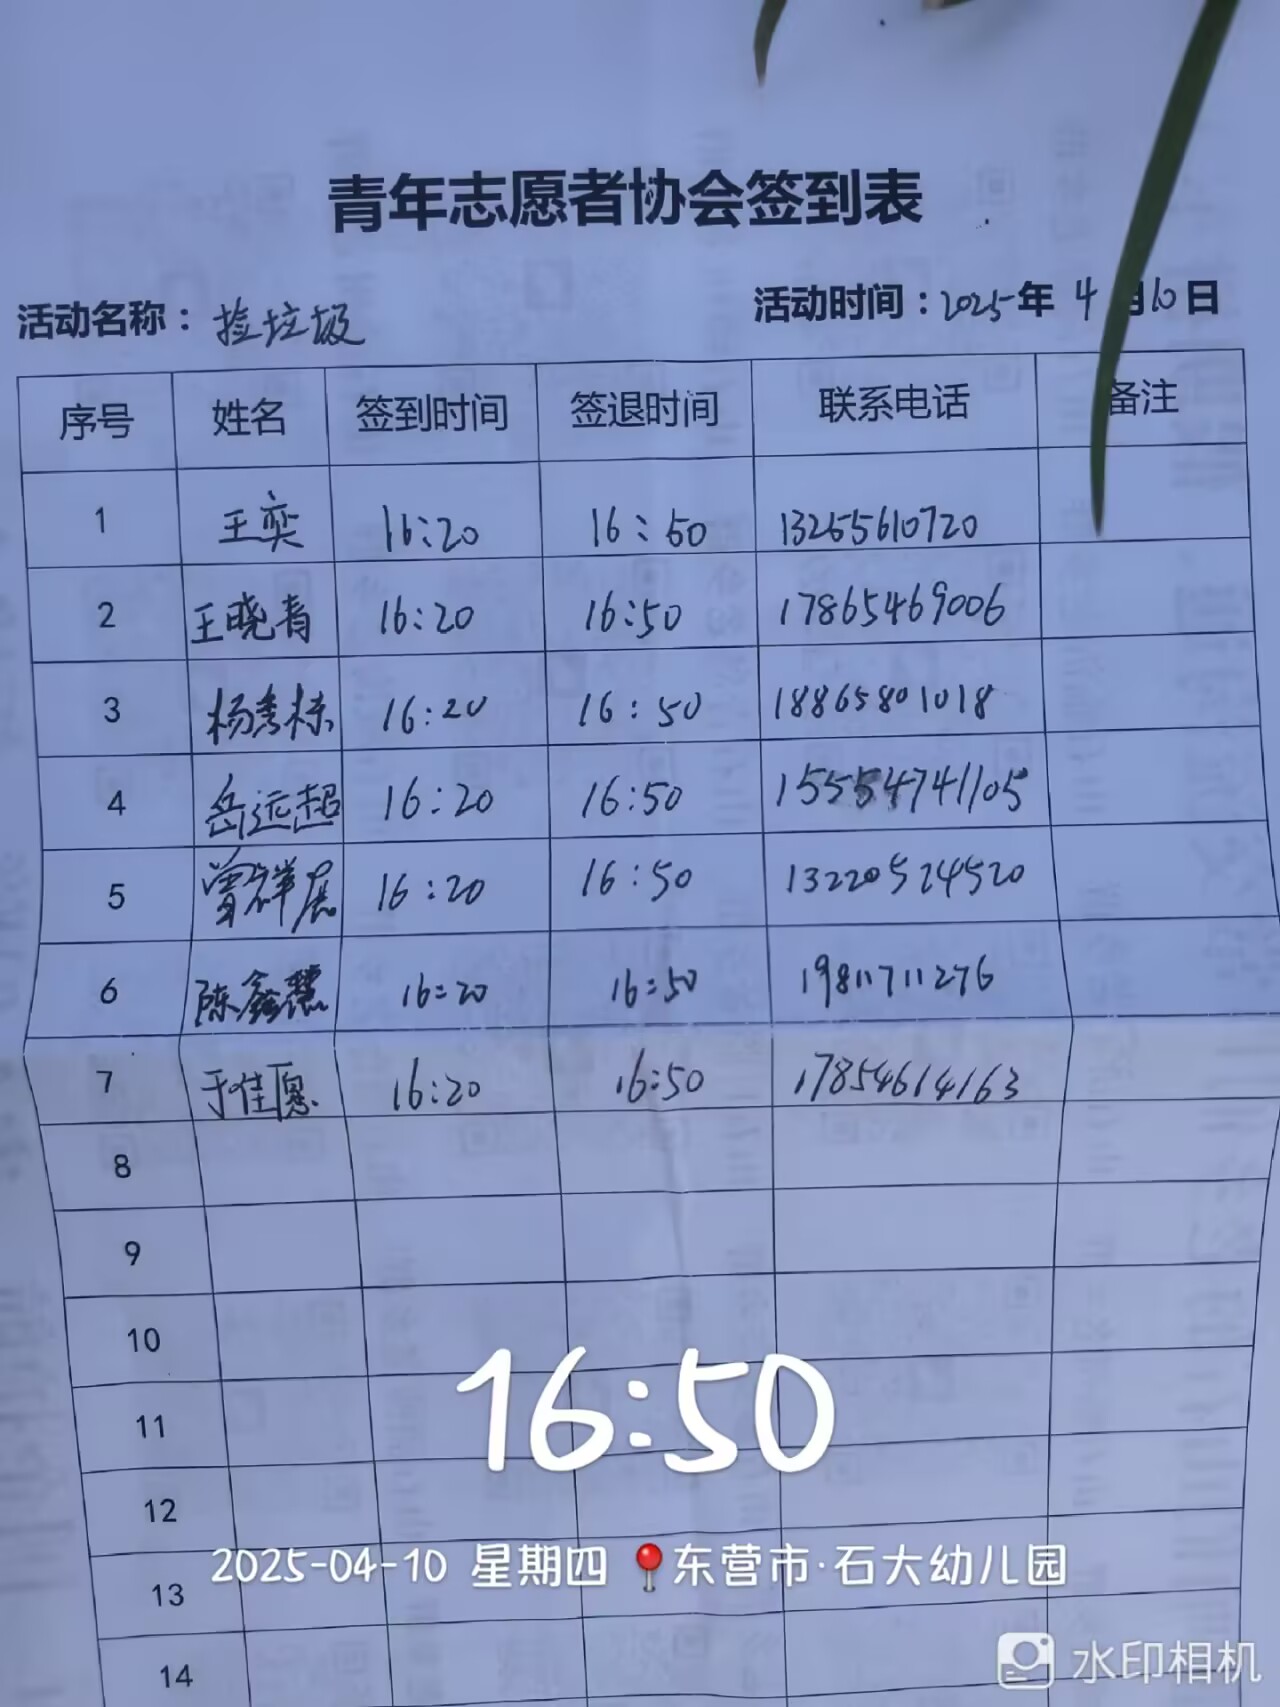 青年志愿者协会签到表
活动名称：捡垃圾 活动时间：2025年4月10日
序号 姓名 签到时间 签退时间 联系电话 备注
1 王奕 16:20 16:50 13265610720
2 王晓青 16:20 16:50 17865469006
3 杨秀栋 16:20 16:50 18865801018
4 岳远超 16:20 16:50 15554741105
5 曾祥展 16:20 16:50 13220524520
6 陈鑫慧 16:20 16:50 19811711276
7 于佳 16:20 16:50 17854614163
8
9
10
11
16:50
12
2025-04-10 星期四 东营市·石大幼儿园
13
14
水印相机